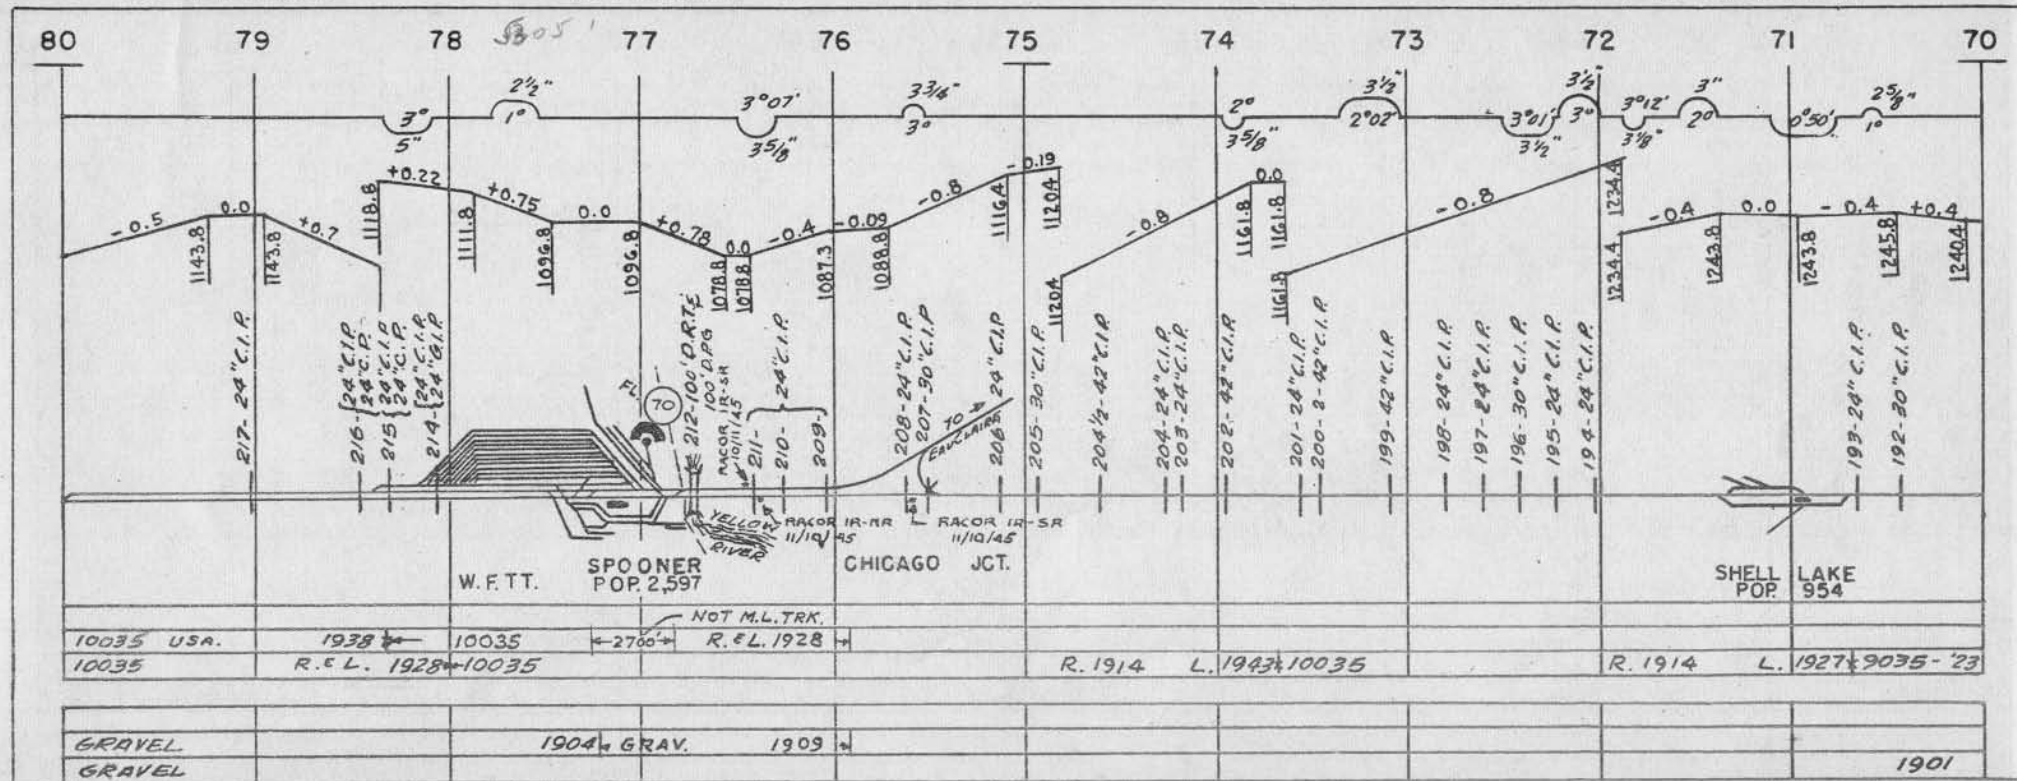 5305'
80 79 78 77 76 75 74 73 72 71 70
2½" 3°07' 3¾" 2° 3½" 3½" 3°12' 3" 2⅝"
3° 1° 3° 2°02' 3°01' 3° 2° 0°50' 1°
5" 3⅝" 3⅝" 3½" 3⅛"
-0.5 0.0 +0.7 +0.22 +0.75 0.0 +0.78 0.0 -0.4 -0.09 -0.8 -0.19 -0.8 0.0 -0.8 -0.4 0.0 -0.4 +0.4
1143.8
1143.8
1118.8
1111.8
1096.8
1096.8
1078.8
1078.8
1087.3
1088.8
1116.4
1120.4
1120.4
1161.8
1161.8
1161.8
1234.4
1234.4
1243.8
1243.8
1245.8
1240.4
217-24"C.I.P.
216-{24"C.I.P.
24"C.P.
215{24"C.I.P.
24"C.P.
214-{24"C.I.P.
24"G.I.P.
FL.
70
212-100' D.R.T.E
100' D.P.G
RACOR IR-SR
10/11/45
211-
210- 24"C.I.P.
209-
208-24"C.I.P.
207-30"C.I.P.
TO
EAU CLAIRE
206- 24"C.I.P.
205-30"C.I.P.
204½-42"C.I.P.
204-24"C.I.P.
203-24"C.I.P.
202-42"C.I.P.
201-24"C.I.P.
200-2-42"C.I.P.
199-42"C.I.P.
198-24"C.I.P.
197-24"C.I.P.
196-30"C.I.P.
195-24"C.I.P.
194-24"C.I.P.
193-24"C.I.P.
192-30"C.I.P.
YELLOW
RIVER
RACOR IR-MR
11/10/45
RACOR IR-SR
11/10/45
W.F.TT.
SPOONER
POP. 2,597
CHICAGO JCT.
SHELL LAKE
POP. 954
NOT M.L.TRK.
10035 USA. 1938 10035 2700' R.&L.1928
10035 R.&L. 1928 10035 R.1914 L.1943 10035 R.1914 L.1927 9035-'23
GRAVEL 1904 GRAV. 1909
GRAVEL 1901